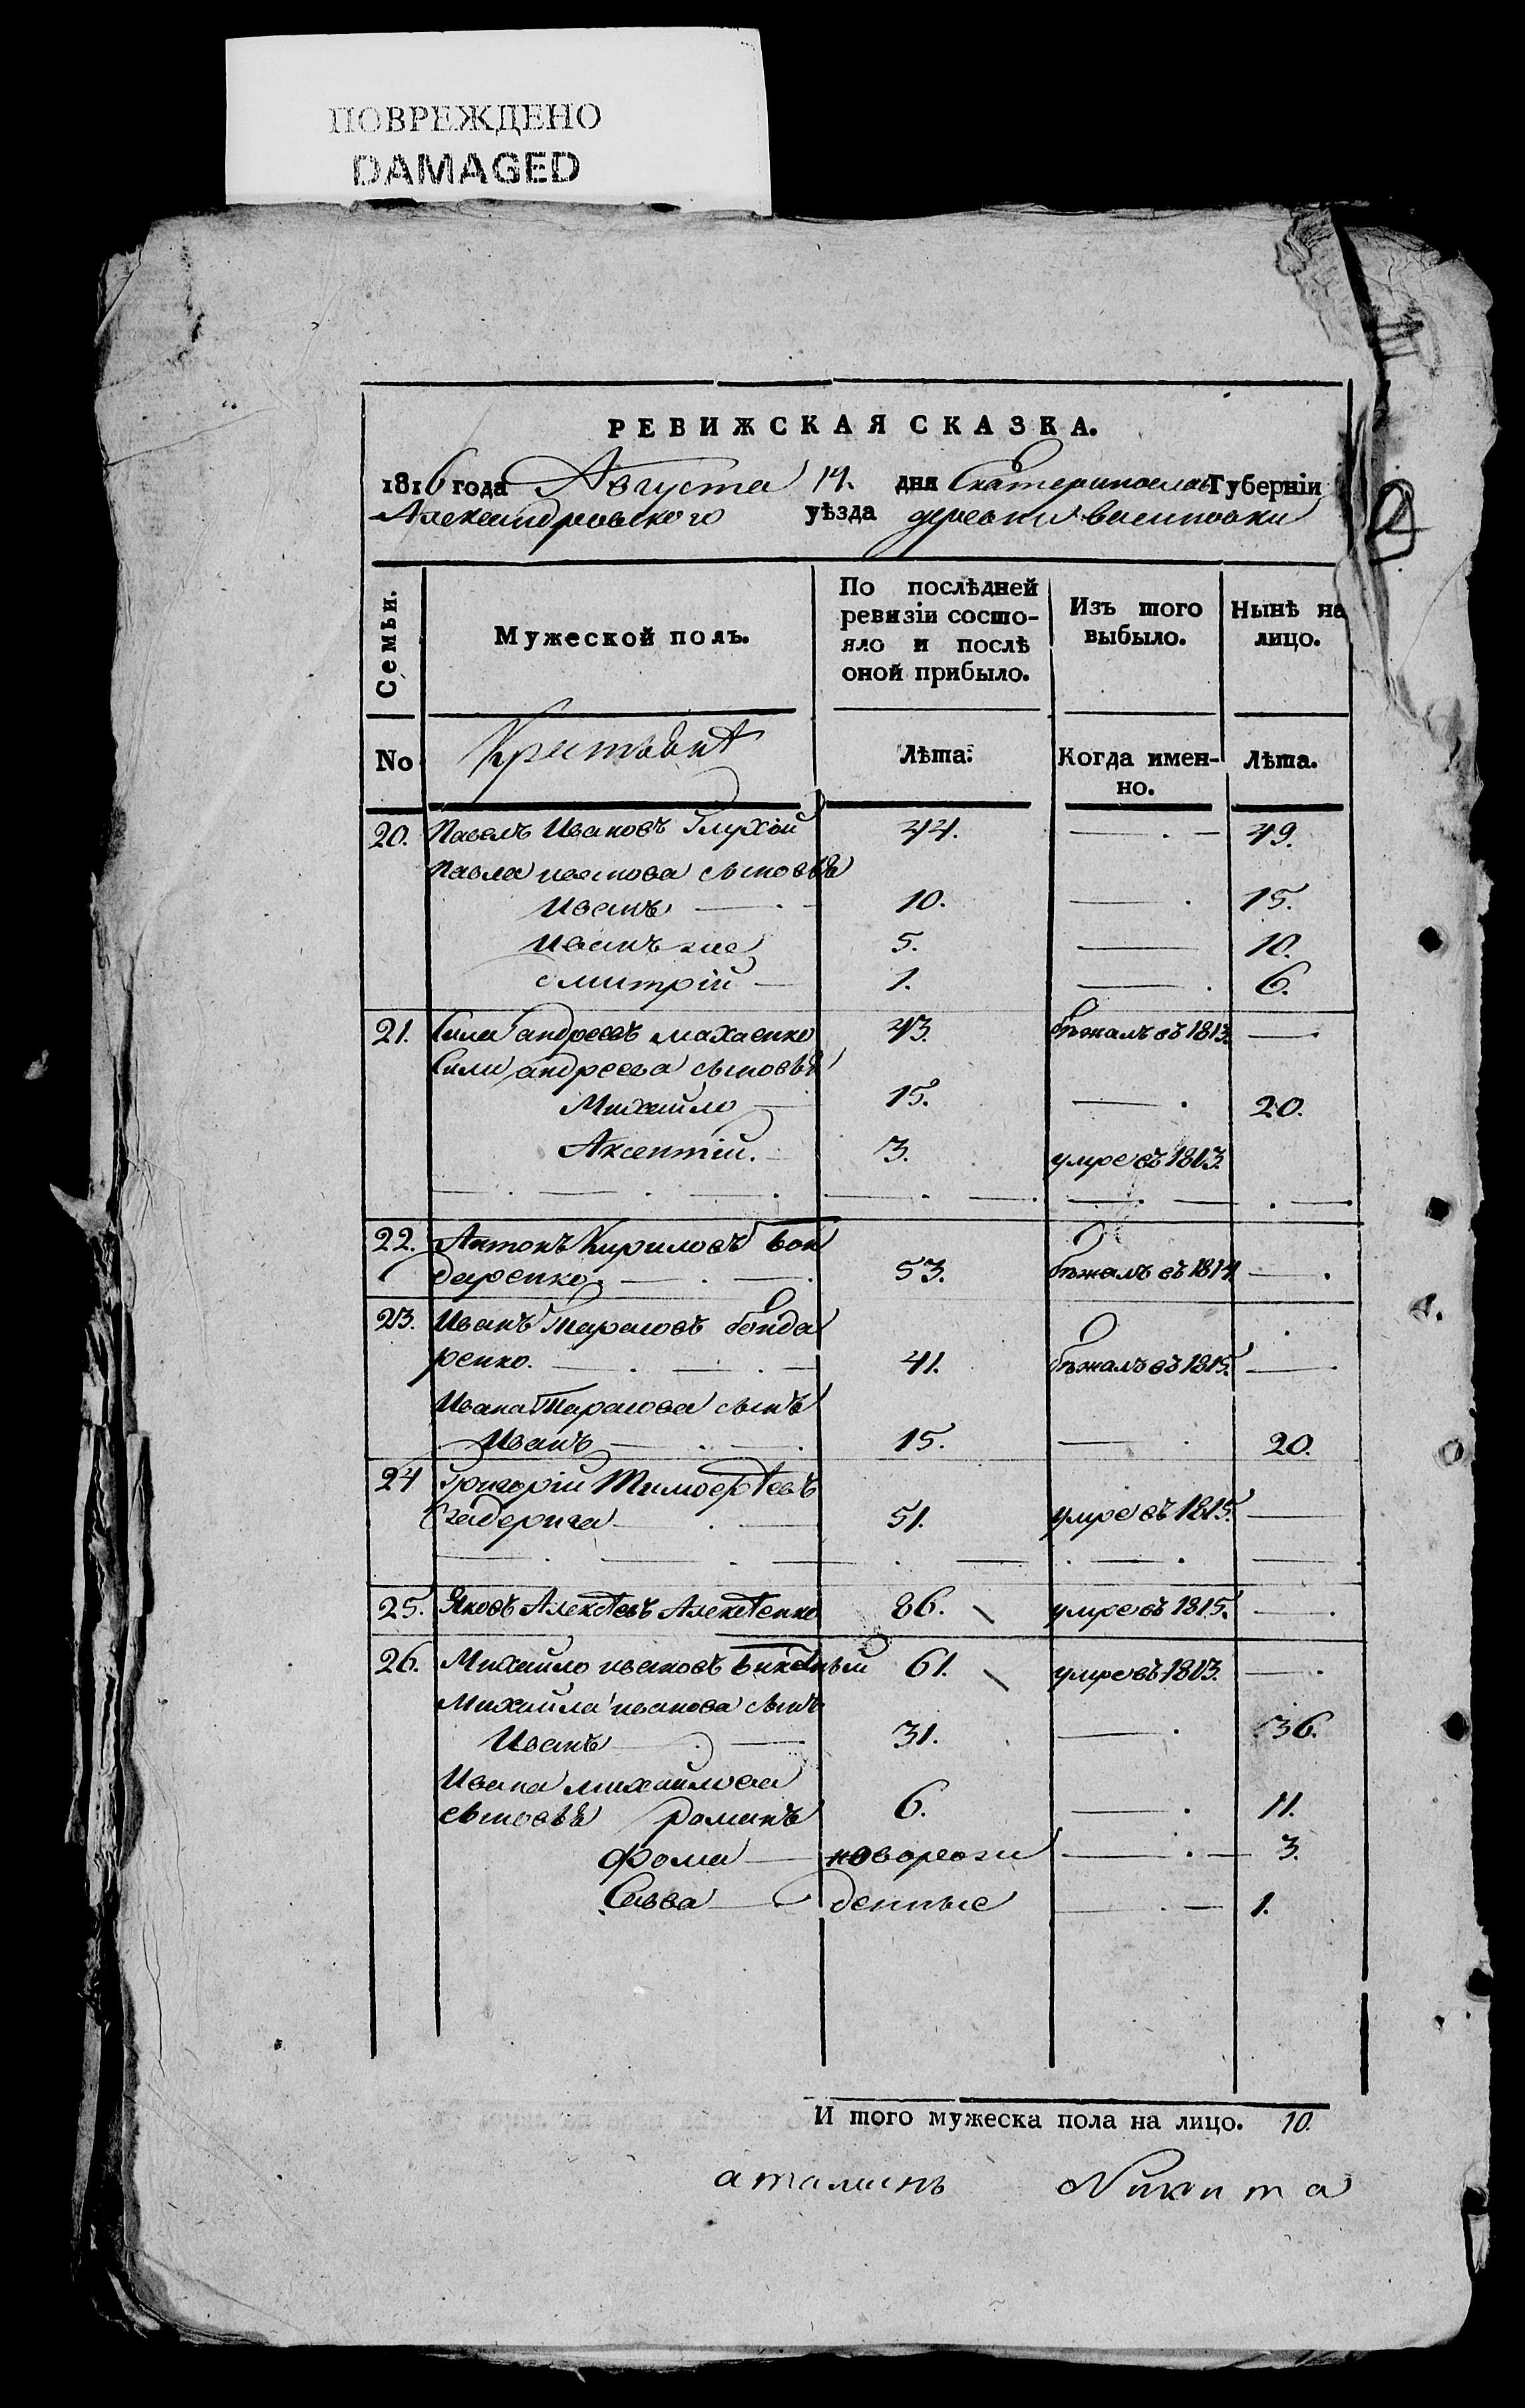 ПОВРЕЖДЕНО
DAMAGED
РЕВИЖСКАЯ СКАЗКА.
1816 года Августа 14. дня Екатеринослав Губерніи
Александровского уѣзда деревни
Семьи. Мужеской полъ. По послѣдней ревизіи состояло и послѣ оной прибыло. Изъ того выбыло. Нынѣ на лицо.
No Крестьянѣ Лѣта: Когда именно. Лѣта.
20. Павелъ Ивановъ Глухой 44. — 49.
Павла иванова сыновья
Иванъ — 10. — 15.
Иванъ же 5. — 10.
Дмитрій — 1. — 6.
21. Сила андреевъ махненко 43. бѣжалъ въ 1813. —
Силы андреева сыновья
Михайло — 15. — 20.
Аксентій. 3. умре въ 1813.
22. Антонъ Кириловъ бон
даренко. — 53. бѣжалъ въ 1814 —
23. Иванъ Тарасовъ бонда
ренко. — 41. бѣжалъ въ 1815. —
Ивана Тарасова сынъ
Иванъ — 15. — 20.
24 Григорій Тимофѣевъ
51. умре въ 1815. —
25. Яковъ Алексѣевъ Алексѣенко 86. умре въ 1815. —
26. Михайло ивановъ 61. умре въ 1813. —
Михайла иванова сынъ
Иванъ — 31. — 36.
Ивана михайлова
сыновья романъ 6. — 11.
Фома — новорож — 3.
Савва — денные — 1.
И того мужеска пола на лицо. 10.
атаманъ Никита